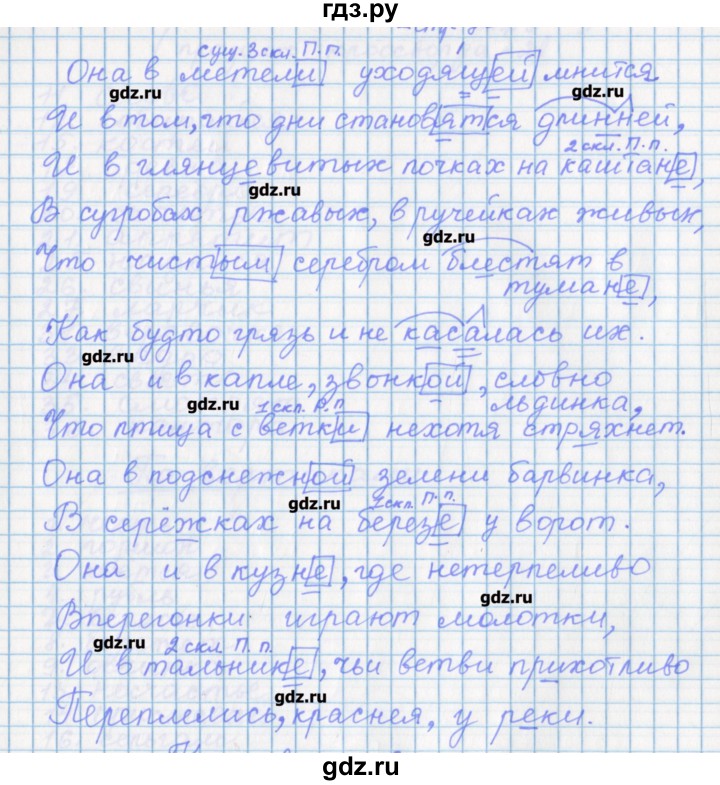 гдз.ру
сущ. 3 скл. П. п.
Она в метели уходящей мнится
gdz.ru
gdz.ru
И в том, что дни становятся длинней,
2 скл. П. п.
И в глянцевитых почках на каштане,
gdz.ru
В сугробах ржавых, в ручейках живых,
gdz.ru
Что чистым серебром блестят в
тумане,
Как будто грязь и не касалась их.
gdz.ru
Она и в капле, звонкой, словно
льдинка,
gdz.ru
1 скл. Р. п.
Что птица с ветки нехотя стряхнет.
Она в подснежной зелени барвинка,
gdz.ru
1 скл. П. п.
В серёжках на березе у ворот.
Она и в кузне, где нетерпеливо
gdz.ru
Вперегонки играют молотки,
gdz.ru
2 скл П. п.
И в тальнике, чьи ветви прихотливо
gdz.ru
Переплелись, краснея, у реки.
gdz.ru